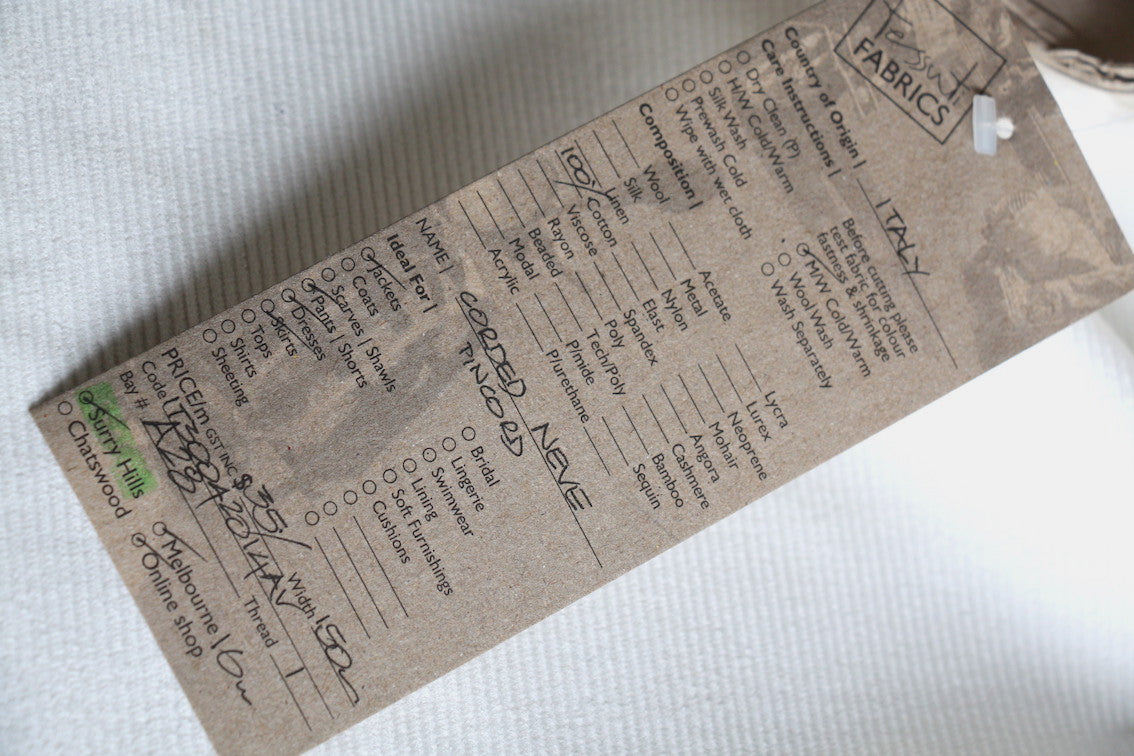 Tessuti
FABRICS
Country of Origin | ITALY
Care Instructions |
Before cutting please
test fabric for colour
fastness & shrinkage
Dry Clean (P)
H/W Cold/Warm
Silk Wash
Prewash Cold
Wipe with wet cloth
M/W Cold/Warm
Wool Wash
Wash Separately
Composition |
Wool
Silk
Linen
100% Cotton
Viscose
Rayon
Beaded
Modal
Acrylic
Acetate
Metal
Nylon
Elast
Spandex
Poly
Tech/Poly
P/mide
P/urethane
Lycra
Lurex
Neoprene
Mohair
Angora
Cashmere
Bamboo
Sequin
NAME | CORDED NEVE
PINCORD
Ideal For |
Jackets
Coats
Scarves | Shawls
Pants | Shorts
Dresses
Skirts
Tops
Shirts
Sheeting
Bridal
Lingerie
Swimwear
Lining
Soft Furnishings
Cushions
PRICE/m GST INC $35/
Width 150
Code
Thread
Bay #
Surry Hills
Chatswood
Melbourne
Online shop